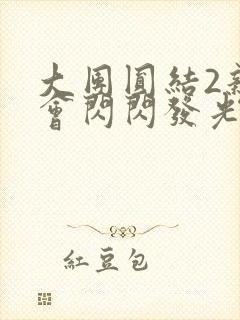 大團圓結2
會閃閃發光
紅豆包